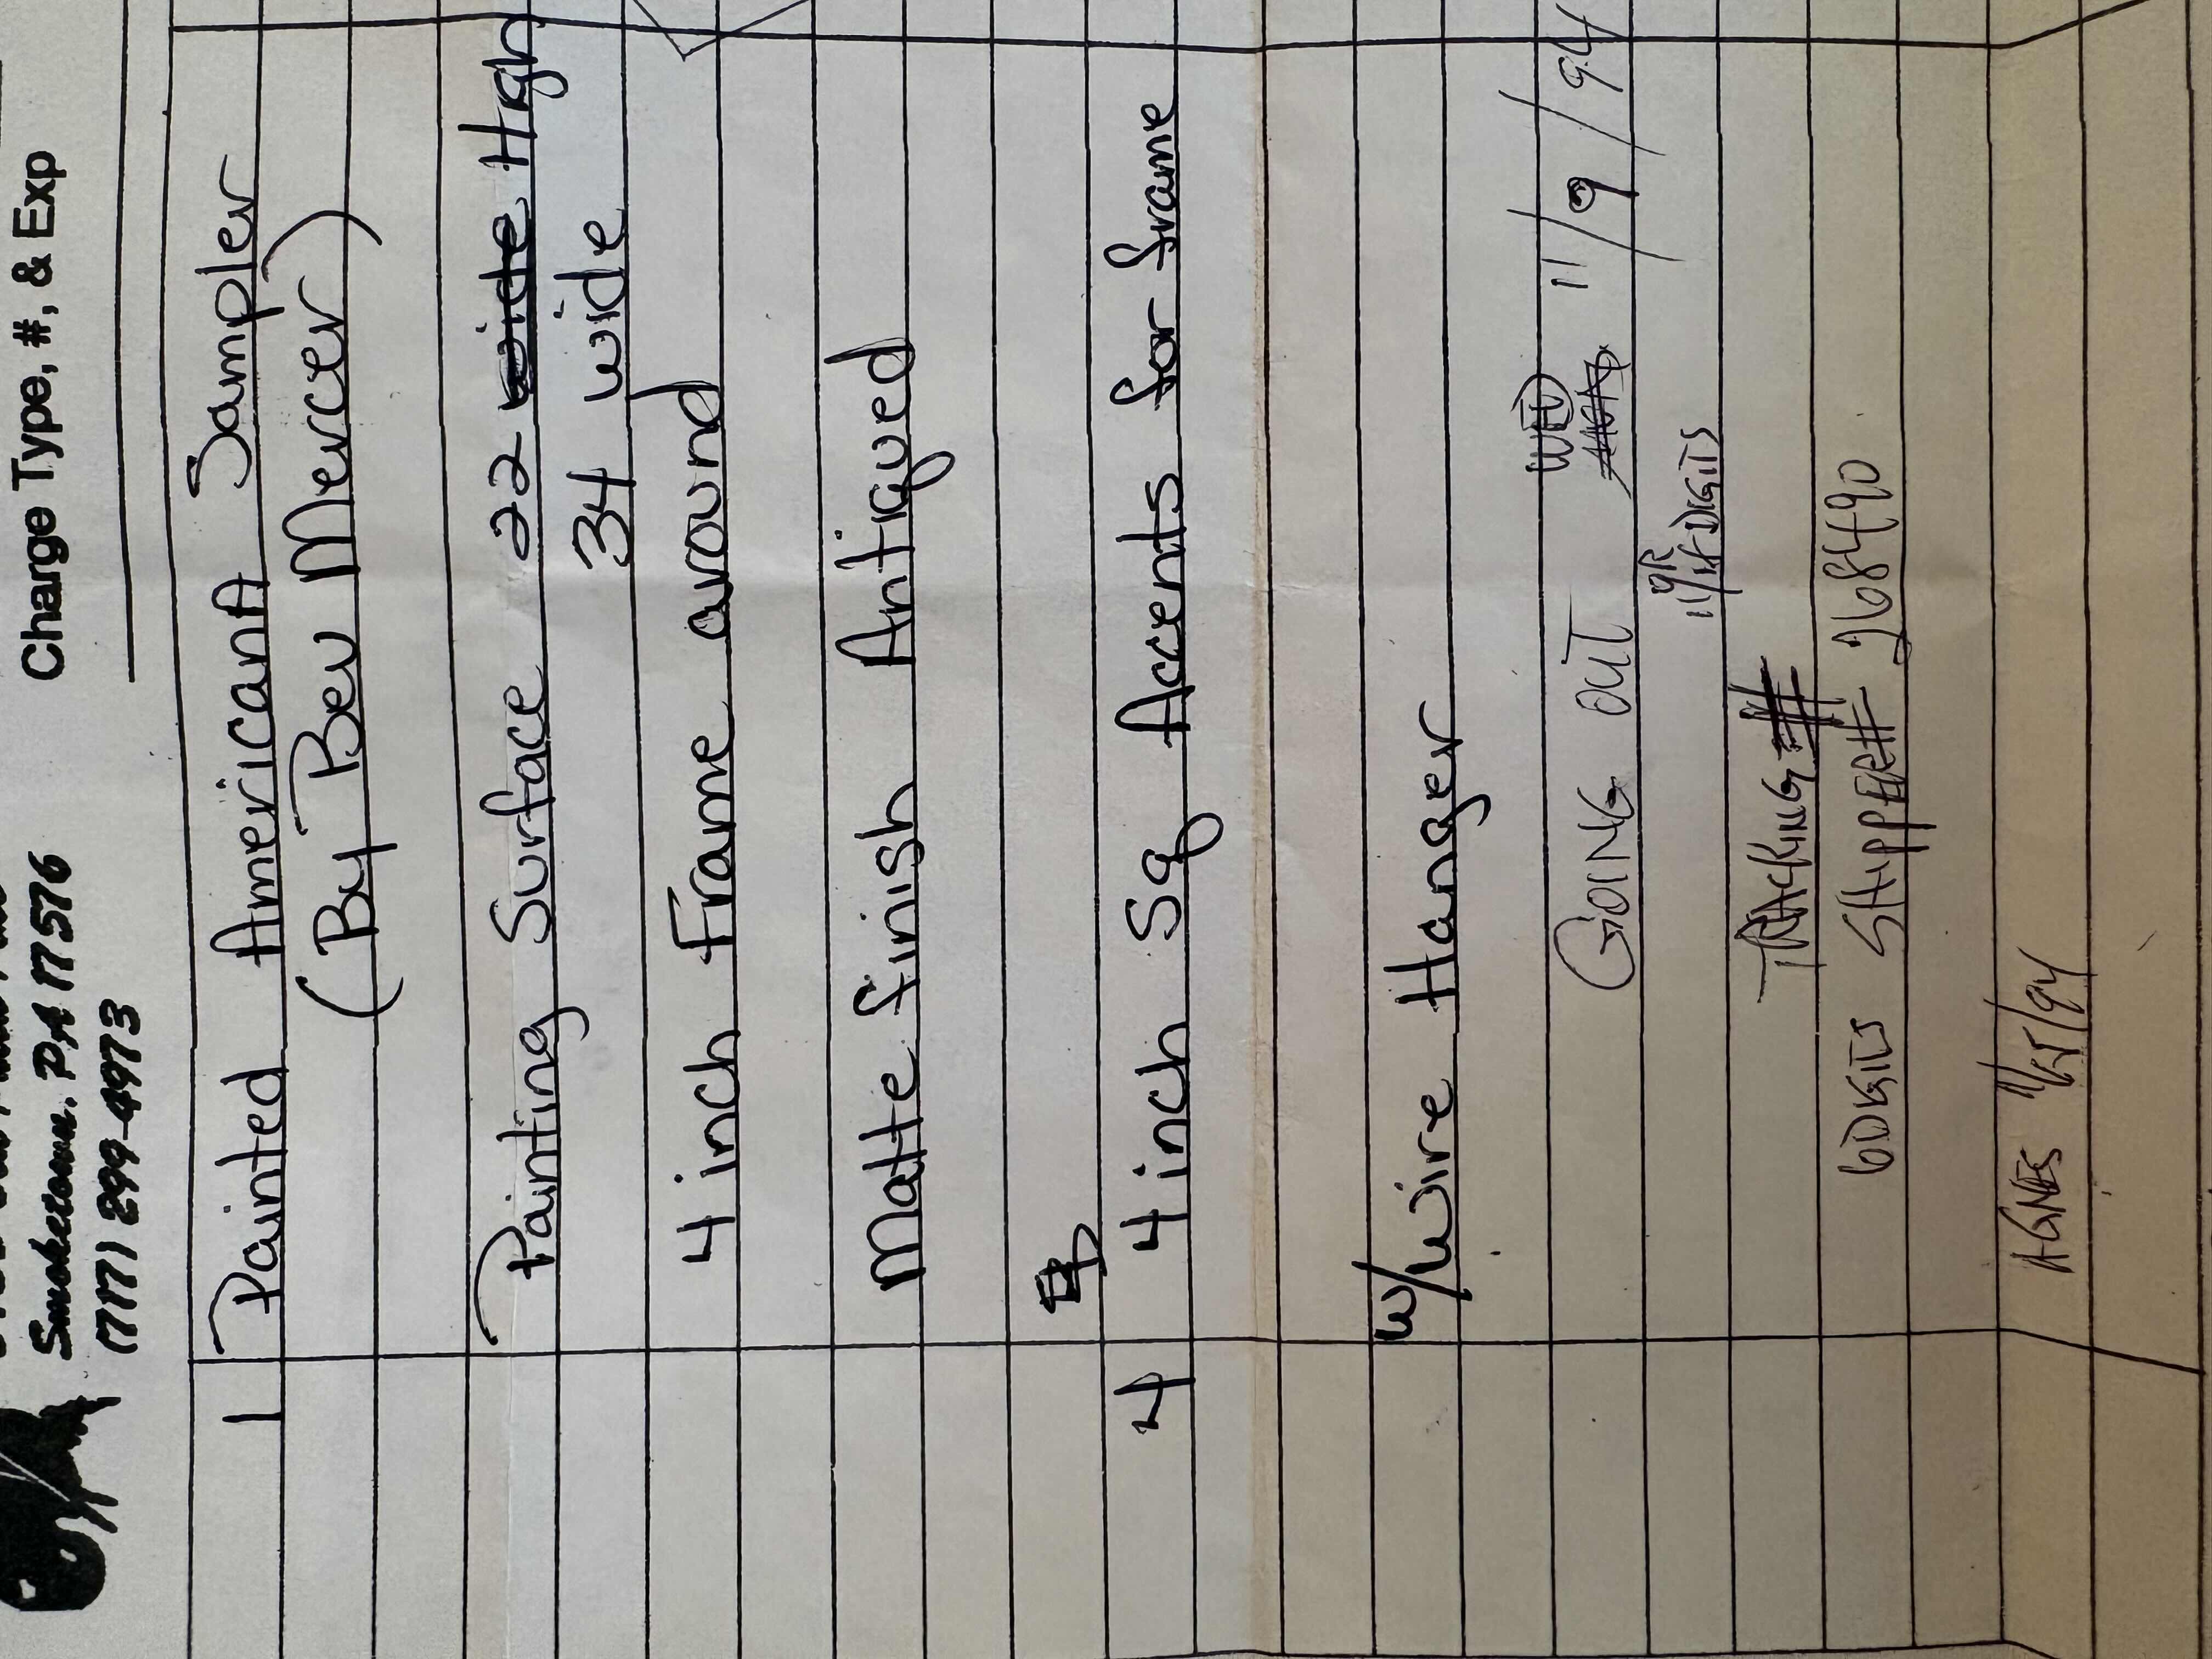 Smoketown, PA 17576
(717) 299-4973
Charge Type, #, & Exp
1 Painted AmericanA Sampler
(By Bev Mercer)
Painting Surface 22 wide High
34 wide
4 inch Frame around
Matte finish Antiqued
4 4 inch Sq Accents for frame
W/Wire Hanger
GOING OUT WED 11/9/94
DIGITS
TRACKING #
6 DIGITS SHIPPER# 268490
AGNES